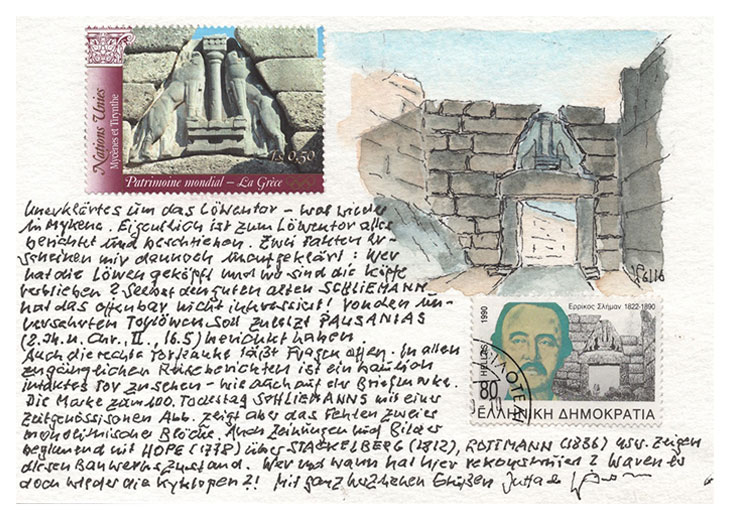 Nations Unies
Mycènes et Tirynthe
Fs 0,50
Patrimoine mondial – La Grèce
Unerklärtes um das Löwentor – war wieder
in Mykene. Eigentlich ist zum Löwentor alles
berichtet und beschrieben. Zwei Fakten er-
scheinen mir dennoch unaufgeklärt: Wer
hat die Löwen geköpft und wo sind die Köpfe
verblieben? Selbst den guten alten SCHLIEMANN
hat das offenbar nicht interessiert! Von den un-
versehrten Torlöwen soll zuletzt PAUSANIAS
(2. Jh. n. Chr., II., 16.5) berichtet haben.
Auch die rechte Torflanke läßt Fragen offen. In allen
zugänglichen Reiseberichten ist ein baulich
intaktes Tor zu sehen – wie auch auf der Briefmarke.
Die Marke zum 100. Todestag SCHLIEMANNS mit einer
zeitgenössischen Abb. zeigt aber das Fehlen zweier
monolithischer Blöcke. Auch Zeichnungen und Bilder
beginnend mit HOPE (1778) über STACKELBERG (1812), ROTTMANN (1836) usw. zeigen
diesen Bauwerkszustand. Wer und wann hat hier rekonstruiert? Waren es
doch wieder die Kyklopen?! Mit ganz herzlichen Grüßen Jutta de
Ερρικος Σλήμαν 1822-1890
HELLAS 1990
80
ΕΛΛΗΝΙΚΗ ΔΗΜΟΚΡΑΤΙΑ